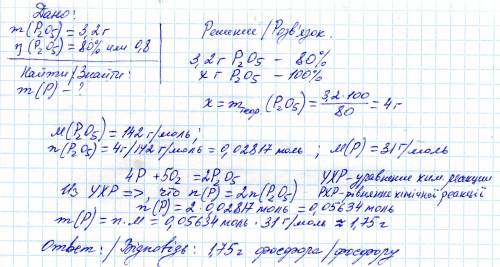 Дано:
m(P₂O₅) = 3,2г
η(P₂O₅) = 80% или 0,8
Найти/Знайти:
m(P) - ?
Решение/Розв'язок.
3,2г P₂O₅ - 80%
x г P₂O₅ - 100%
x = mтеор.(P₂O₅) = 3,2·100/80 = 4г
M(P₂O₅) = 142 г/моль;
n(P₂O₅) = 4г/142 г/моль = 0,02817 моль ; M(P) = 31 г/моль
4P + 5O₂ = 2P₂O₅ УХР-уравнение хим. реакции
Из УХР => что n(P) = 2n(P₂O₅) РХР-рівняння хімічної реакції
n(P) = 2·0,02817 моль = 0,05634 моль
m(P) = n·M = 0,05634 моль · 31 г/моль ≈ 1,75г
Ответ:/Відповідь: 1,75г фосфора/фосфору